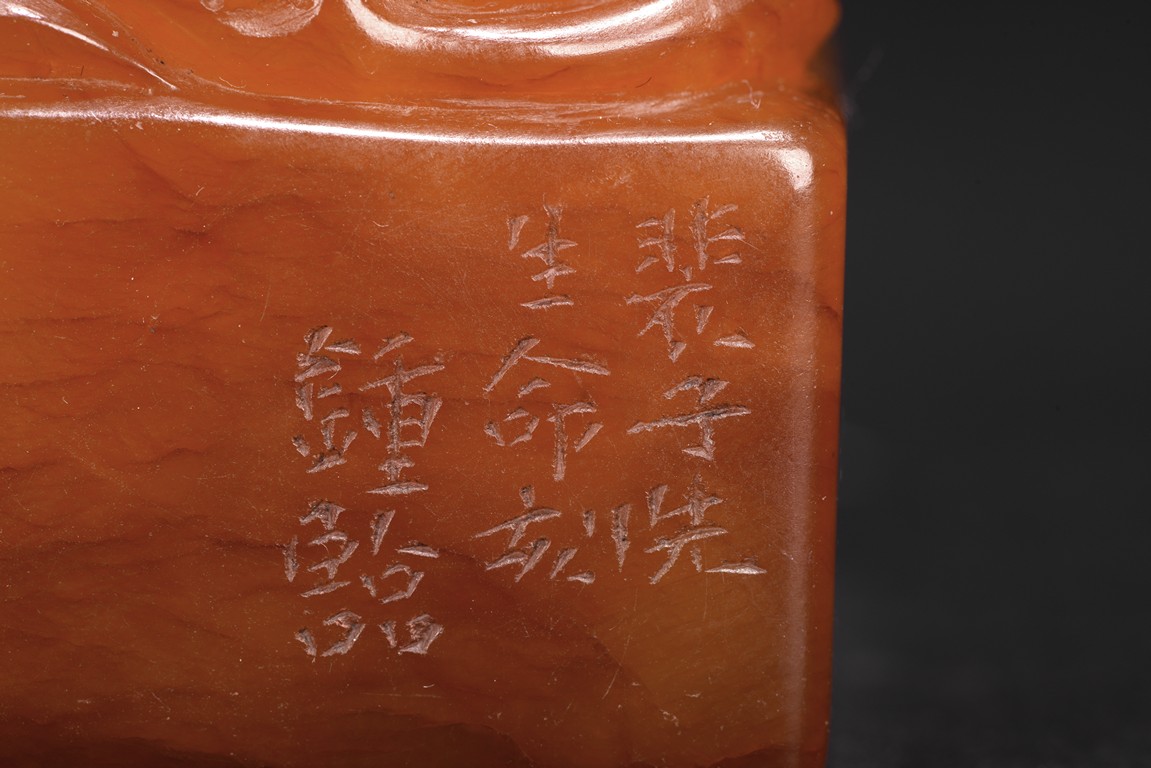 裴子先
生命刻
鍾